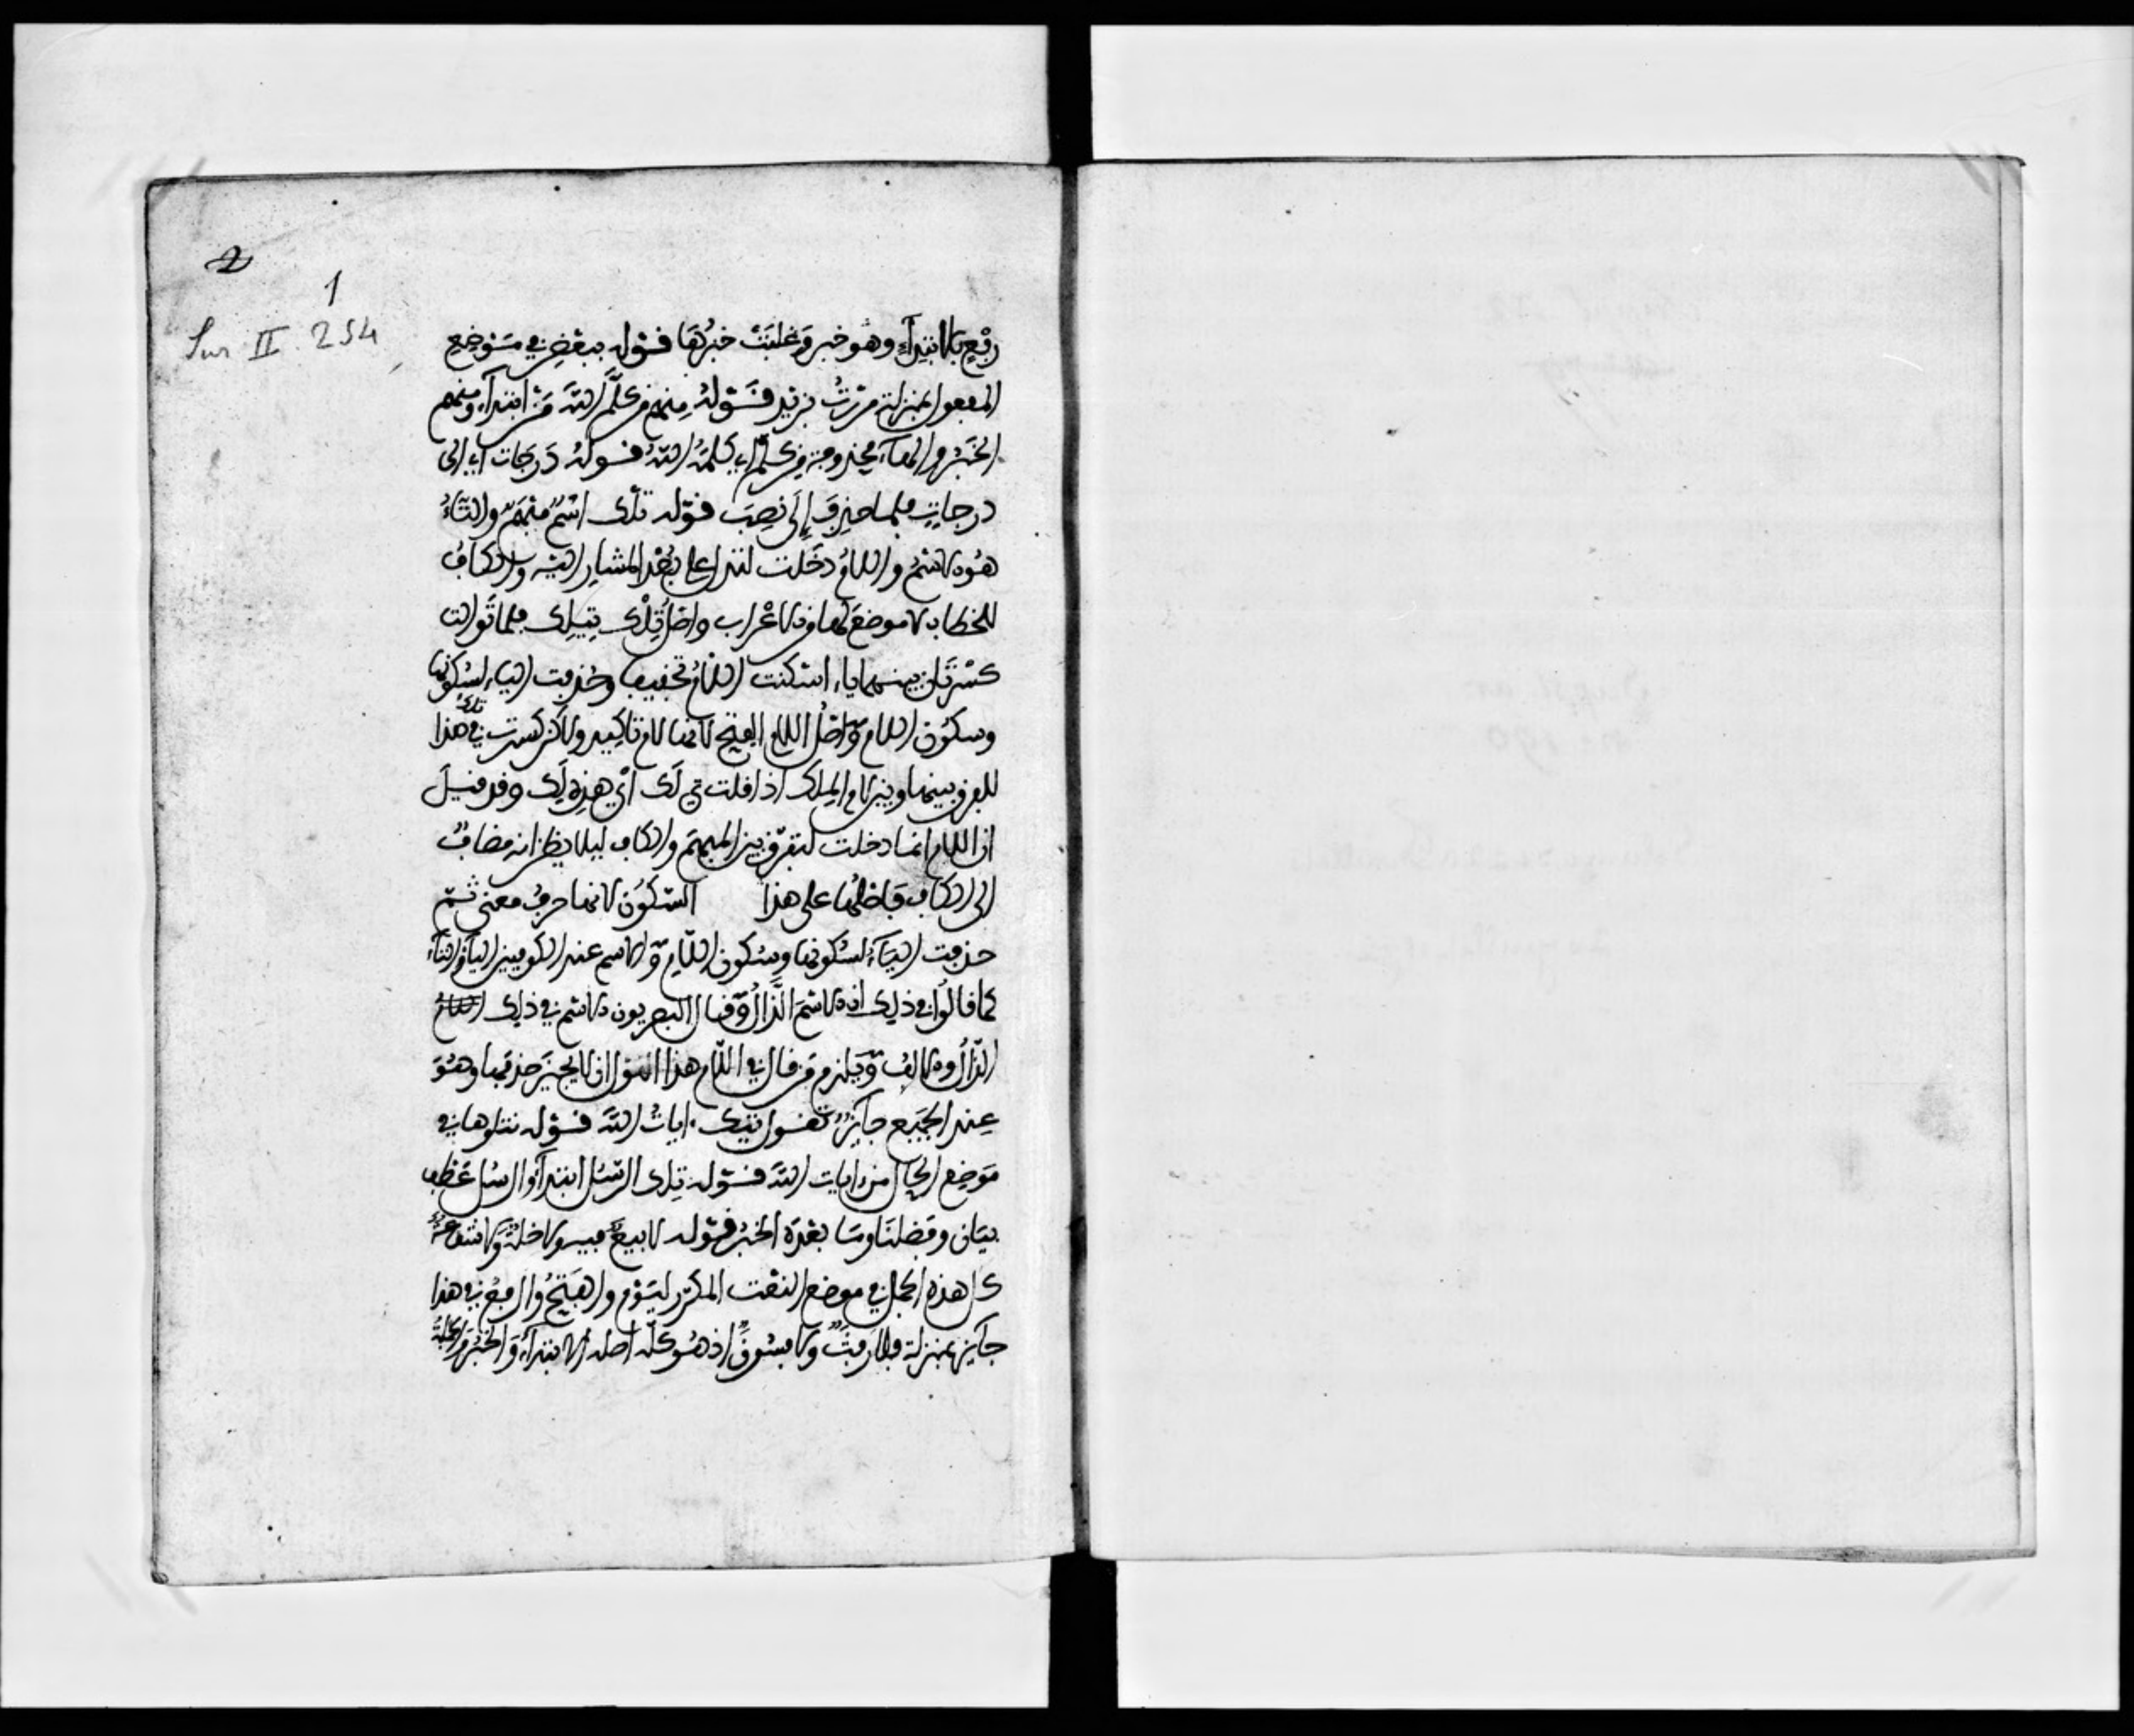 2
1
Sur II 254
رفع بالابتداء وهو خبر وغلبت خبرها قوله ببعض في موضع
المفعول بمنزلة مررت بزيد قوله منهم من كلم الله من ابتداء ومنهم
الخبر والهاء محذوفة من كلم اي كلمه الله قوله درجات اي الى
درجات فلما حذف إلى نصب قوله تلك اسم مبهم والتاء
هو الاسم واللام دخلت لتدل على بعد المشار اليه والكاف
للخطاب لا موضع لها من الاعراب واصل تلك تيلك فلما توالت
كسرتان بينهما ياء اسكنت اللام تخفيفا وحذفت الياء لسكونها
وسكون اللام واصل اللام الفتح لانها لام تاكيد ولاكن كسرت في هذا
للفرق بينها وبين لام الملك اذا قلت تي لك اي هذه لك وقد قيل
ان اللام انما دخلت لتفرق بين المبهم والكاف ليلا يظن انه مضاف
الى الكاف فاصلها على هذا السكون لانها حرف معنى ثم
حذفت الياء لسكونها وسكون اللام والاسم عند الكوفيين التاء
كما قالوا في ذلك ان الاسم الذال وقال البصريون الاسم في ذلك
الذال والالف ويلزم من قال في اللام هذا القول ان لا يجيز حذفها وهو
عند الجميع جائز تقول تيك ءايات الله قوله نتلوها في
موضع الحال من ءايات الله قوله تلك الرسل ابتداء والرسل عطف
بيان وفضلنا وما بعده الخبر قوله لا بيع فيه ولا خلة ولا شفاعة
كل هذه الجمل في موضع النعت المكرر ليوم والفتح والرفع في هذا
جائز بمنزلة فلا رفث ولا فسوق اذ هو كله اصله الابتداء والخبر والجملة